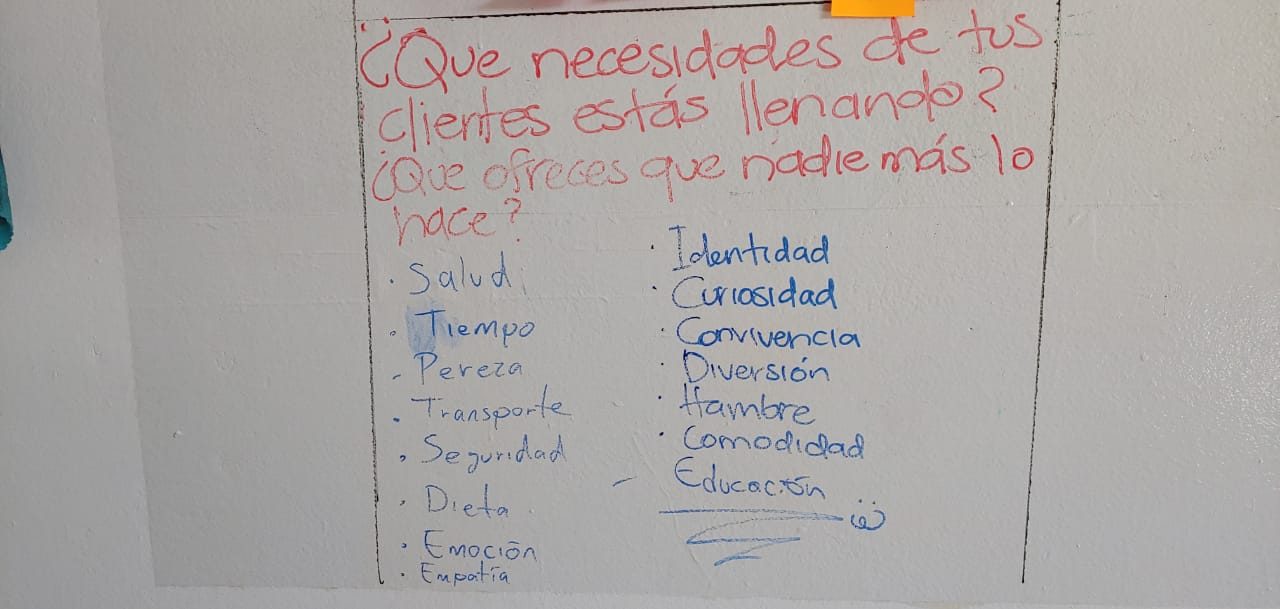 ¿Que necesidades de tus
clientes estás llenando?
¿Que ofreces que nadie más lo
hace?
· Salud
· Tiempo
- Pereza
· Transporte
· Seguridad
· Dieta
· Emoción
· Empatía
· Identidad
· Curiosidad
· Convivencia
· Diversión
· Hambre
· Comodidad
- Educación